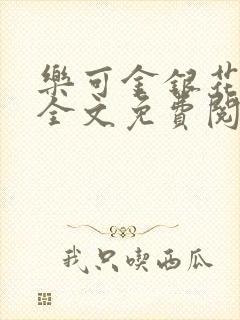 樂可金銀花
全文免費閱
我只喫西瓜